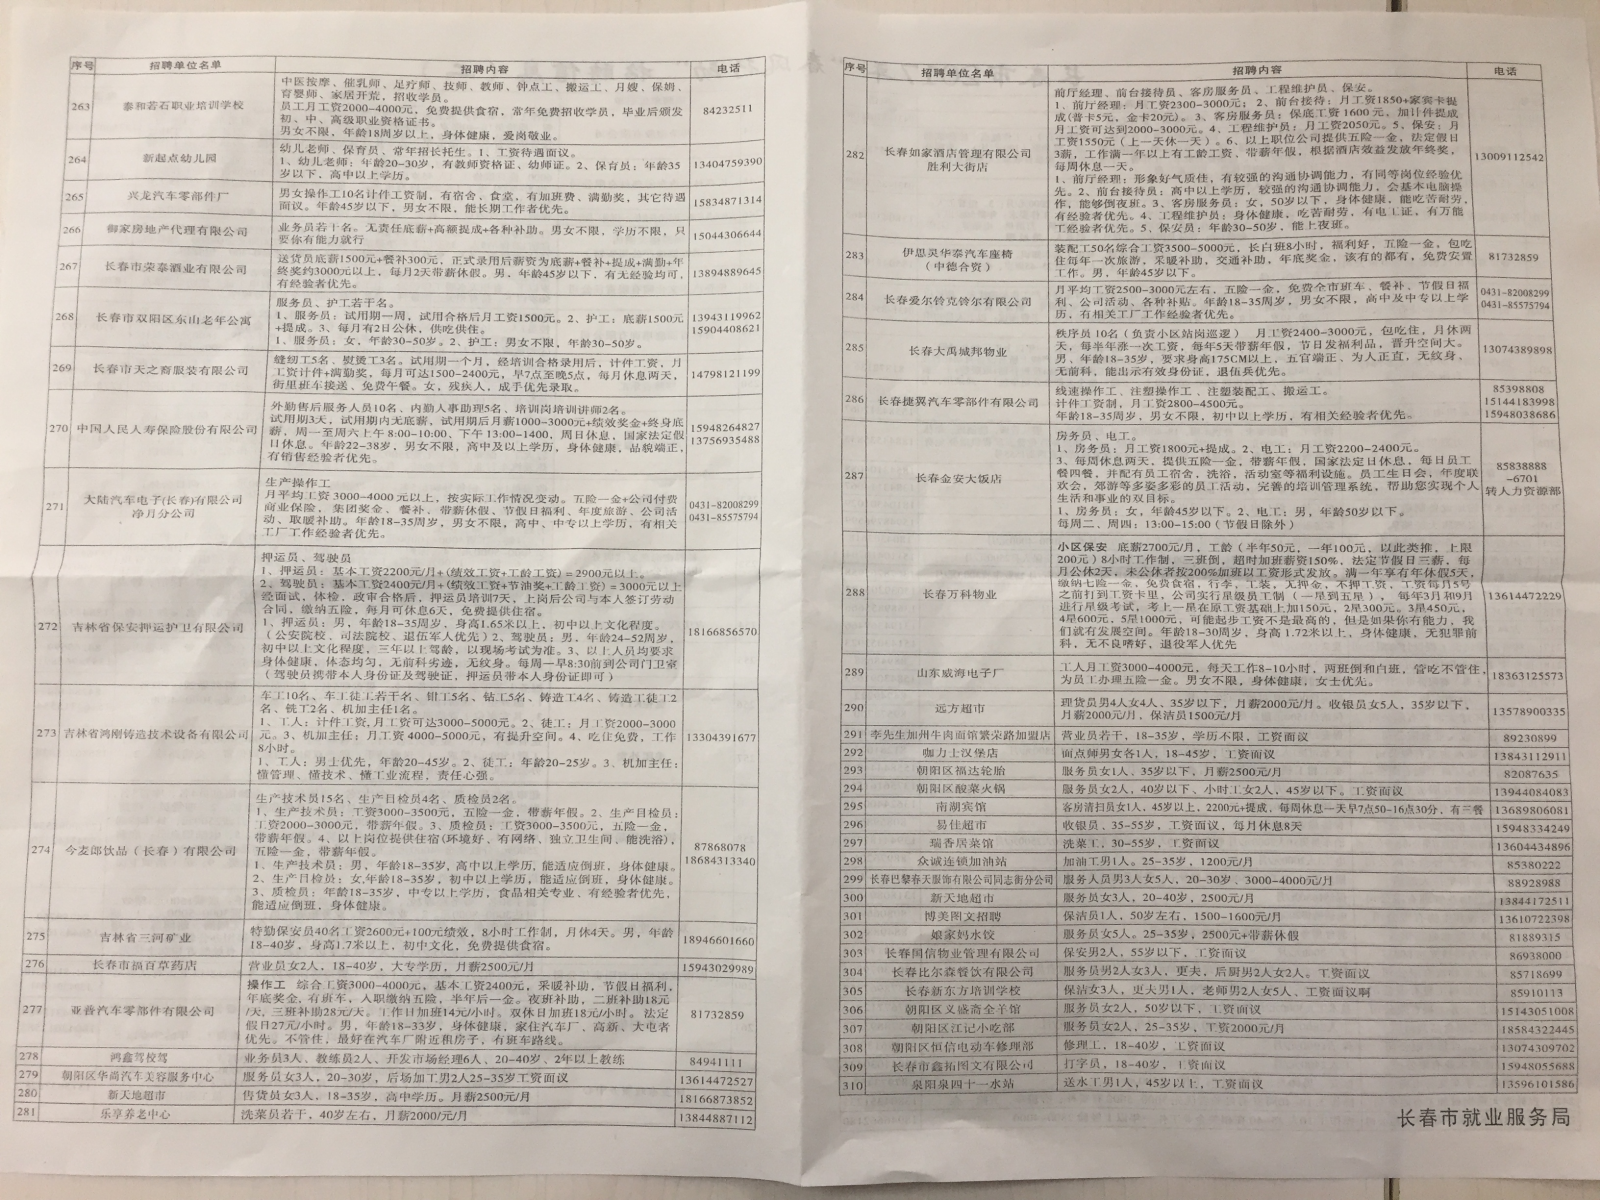 序号 招聘单位名单 招聘内容 电话
263 泰和若石职业培训学校 84232511
中医按摩、催乳师、足疗师、技师、教师、钟点工、搬运工、月嫂、保姆、
育婴师、家居开荒，招收学员。
员工月工资2000-4000元，免费提供食宿，常年免费招收学员，毕业后颁发
初、中、高级职业资格证书。
男女不限，年龄18周岁以上，身体健康，爱岗敬业。
264 新起点幼儿园 13404759390
幼儿老师、保育员、常年招长托生。1、工资待遇面议。
1、幼儿老师：年龄20-30岁，有教师资格证、幼师证。2、保育员：年龄35
岁以下，高中以上学历。
265 兴龙汽车零部件厂 15834871314
男女操作工10名计件工资制，有宿舍、食堂，有加班费、满勤奖，其它待遇
面议。年龄45岁以下，男女不限，能长期工作者优先。
266 御家房地产代理有限公司 15044306644
业务员若干名。无责任底薪+高额提成+各种补助。男女不限，学历不限，只
要你有能力就行
267 长春市荣泰酒业有限公司 13894889645
送货员底薪1500元+餐补300元，正式录用后薪资为底薪+餐补+提成+满勤+年
终奖约3000元以上，每月2天带薪体假。男，年龄45岁以下，有无经验均可，
有经验者优先。
268 长春市双阳区东山老年公寓 13943119962 15904408621
服务员、护工若干名。
1、服务员：试用期一周，试用合格后月工资1500元。2、护工：底薪1500元
+提成。3、每月有2日公休，供吃供住。
1、服务员：女，年龄30-50岁。2、护工：男女不限，年龄30-50岁。
269 长春市天之裔服装有限公司 14798121199
缝纫工5名、熨烫工3名。试用期一个月，经培训合格录用后，计件工资，月
工资计件+满勤奖，每月可达1500-2400元，早7点至晚5点，每月休息两天，
街里班车接送、免费午餐。女，残疾人，成手优先录取。
270 中国人民人寿保险股份有限公司 15948264827 13756935488
外勤售后服务人员10名、内勤人事助理5名，培训岗培训讲师2名。
试用期3天，试用期内无底薪，试用期后月薪1000-3000元+绩效奖金+终身底
薪，周一至周六上午8:00-10:00、下午13:00-1400，周日休息，国家法定假
日休息。年龄22-38岁，男女不限，高中及以上学历，身体健康，品貌端正，
有销售经验者优先。
271 大陆汽车电子(长春)有限公司 净月分公司 0431-82008299 0431-85575794
生产操作工
月平均工资3000-4000元以上，按实际工作情况变动。五险一金+公司付费
商业保险，集团奖金、餐补、带薪休假、节假日福利、年度旅游、公司活
动、取暖补助。年龄18-35周岁，男女不限，高中、中专以上学历，有相关
工厂工作经验者优先。
272 吉林省保安押运护卫有限公司 18166856570
押运员、驾驶员
1、押运员：基本工资2200元/月+(绩效工资+工龄工资)=2900元以上。
2、驾驶员：基本工资2400元/月+(绩效工资+节油奖+工龄工资)=3000元以上
经面试，体检，政审合格后，押运员培训7天，上岗后公司与本人签订劳动
合同，缴纳五险，每月可休息6天，免费提供住宿。
1、押运员：男，年龄18-35周岁，身高1.65米以上，初中以上文化程度。
（公安院校、司法院校、退伍军人优先）2、驾驶员：男，年龄24-52周岁，
初中以上文化程度，三年以上驾龄，以现场考试为准。3、以上人员均要求
身体健康，体态均匀，无前科劣迹，无纹身。每周一早8:30前到公司门卫室
（驾驶员携带本人身份证及驾驶证，押运员带本人身份证即可）
273 吉林省鸿刚铸造技术设备有限公司 13304391677
车工10名、车工徒工若干名、钳工5名、钻工5名、铸造工4名、铸造工徒工2
名、铣工2名、机加主任1名。
1、工人：计件工资,月工资可达3000-5000元。2、徒工：月工资2000-3000
元。3、机加主任：月工资4000-5000元，有提升空间。4、吃住免费，工作
8小时。
1、工人：男士优先，年龄20-45岁。2、徒工：年龄20-25岁。3、机加主任：
懂管理、懂技术、懂工业流程，责任心强。
274 今麦郎饮品（长春）有限公司 87868078 18684313340
生产技术员15名、生产目检员4名、质检员2名。
1、生产技术员：工资3000-3500元，五险一金，带薪年假。2、生产目检员：
工资2000-3000元，带薪年假。3、质检员：工资3000-3500元，五险一金，
带薪年假。4、以上岗位提供住宿(环境好、有网络、独立卫生间、能洗浴)，
五险一金，带薪年假。
1、生产技术员：男，年龄18-35岁，高中以上学历,能适应倒班，身体健康。
2、生产目检员：女,年龄18-35岁，初中以上学历，能适应倒班，身体健康。
3、质检员：年龄18-35岁，中专以上学历，食品相关专业、有经验者优先，
能适应倒班，身体健康。
275 吉林省三河矿业 18946601660
特勤保安员40名工资2600元+100元绩效，8小时工作制，月休4天。男，年龄
18-40岁，身高1.7米以上，初中文化，免费提供食宿。
276 长春市福百草药店 营业员女2人，18-40岁，大专学历，月薪2500元/月 15943029989
277 亚普汽车零部件有限公司 81732859
操作工 综合工资3000-4000元，基本工资2400元，采暖补助，节假日福利，
年底奖金,有班车，入职缴纳五险，半年后一金。夜班补助，二班补助18元
/天,三班补助28元/天。工作日加班14元/小时。双休日加班18元/小时。法定
假日27元/小时。男，年龄18-33岁，身体健康，家住汽车厂、高新、大屯者
优先。不管住，最好在汽车厂附近租房子，有班车路线。
278 鸿鑫驾校驾 业务员3人，教练员2人、开发市场经理6人、20-40岁、2年以上教练 84941111
279 朝阳区华尚汽车美容服务中心 服务员女3人，20-30岁，后场加工男2人25-35岁工资面议 13614472527
280 新天地超市 售货员女3人，18-35岁，高中学历。月薪2500元/月 18166873852
281 乐享养老中心 洗菜员若干，40岁左右，月薪2000/元/月 13844887112
序号 招聘单位名单 招聘内容 电话
282 长春如家酒店管理有限公司 胜利大街店 13009112542
前厅经理、前台接待员、客房服务员、工程维护员、保安。
1、前厅经理：月工资2300-3000元；2、前台接待：月工资1850+家宾卡提
成(普卡5元，金卡20元）。3、客房服务员：保底工资1600元，加计件提成
月工资可达到2000-3000元。4、工程维护员：月工资2050元。5、保安：月
工资1550元（上一天休一天）。6、以上职位公司提供五险一金，法定假日
3薪，工作满一年以上有工龄工资、带薪年假，根据酒店效益发放年终奖，
每周休息一天。
1、前厅经理：形象好气质佳，有较强的沟通协调能力，有同等岗位经验优
先。2、前台接待员：高中以上学历，较强的沟通协调能力，会基本电脑操
作，能够倒夜班。3、客房服务员：女，50岁以下，身体健康，能吃苦耐劳，
有经验者优先。4、工程维护员：身体健康，吃苦耐劳，有电工证，有万能
工经验者优先。5、保安员：年龄30-50岁，能上夜班。
283 伊思灵华泰汽车座椅 （中德合资） 81732859
装配工50名综合工资3500-5000元，长白班8小时，福利好，五险一金，包吃
住每年一次旅游，采暖补助，交通补助，年底奖金，该有的都有，免费安置
工作。男，年龄45岁以下。
284 长春爱尔铃克铃尔有限公司 0431-82008299 0431-85575794
月平均工资2500-3000元左右，五险一金，免费全市班车、餐补、节假日福
利、公司活动、各种补贴。年龄18-35周岁，男女不限，高中及中专以上学
历，有相关工厂工作经验者优先。
285 长春大禹城邦物业 13074389898
秩序员10名（负责小区站岗巡逻） 月工资2400-3000元，包吃住，月休两
天，每半年涨一次工资，每年5天带薪年假，节日发福利品，晋升空间大。
男、年龄18-35岁，要求身高175CM以上，五官端正、为人正直，无纹身、
无前科，能出示有效身份证，退伍兵优先。
286 长春捷翼汽车零部件有限公司 85398808 15144183998 15948038686
线速操作工、注塑操作工、注塑装配工、搬运工。
计件工资制，月工资2800-4500元。
年龄18-35周岁，男女不限，初中以上学历，有相关经验者优先。
287 长春金安大饭店 85838888 -6701 转人力资源部
房务员、电工。
1、房务员：月工资1800元+提成。2、电工：月工资2200-2400元。
3、每周休息两天，提供五险一金，带薪年假，国家法定日休息，每日员工
餐四餐，并配有员工宿舍，洗浴，活动室等福利设施。员工生日会，年度联
欢会，郊游等多姿多彩的员工活动，完善的培训管理系统，帮助您实现个人
生活和事业的双目标。
1、房务员：女，年龄45岁以下。2、电工：男，年龄50岁以下。
每周二、周四：13:00-15:00（节假日除外）
288 长春万科物业 13614472229
小区保安 底薪2700元/月，工龄（半年50元，一年100元，以此类推，上限
200元）8小时工作制，三班倒，超时加班薪资150%，法定节假日三薪，每
月公休2天，未公休者按200%加班以工资形式发放。满一年享有年休假5天，
缴纳七险一金，免费食宿，行李，工装，无押金，不押工资，工资每月5号
之前打到工资卡里，公司实行星级员工制（一星到五星），每年3月和9月
进行星级考试，考上一星在原工资基础上加150元，2星300元。3星450元，
4星600元，5星1000元，可能起步工资不是最高的，但是如果你有能力，我
们就有发展空间。年龄18-30周岁，身高1.72米以上，身体健康，无犯罪前
科，无不良嗜好，退役军人优先
289 山东威海电子厂 18363125573
工人月工资3000-4000元，每天工作8-10小时，两班倒和白班，管吃不管住，
为员工办理五险一金。男女不限，身体健康，女士优先。
290 远方超市 13578900335
理货员男4人女4人、35岁以下，月薪2000元/月。收银员女5人，35岁以下、
月薪2000元/月，保洁员1500元/月
291 李先生加州牛肉面馆繁荣路加盟店 营业员若干，18-35岁，学历不限，工资面议 89230899
292 咖力士汉堡店 面点师男女各1人，18-45岁，工资面议 13843112911
293 朝阳区福达轮胎 服务员女1人，35岁以下，月薪2500元/月 82087635
294 朝阳区酸菜火锅 服务员女2人，40岁以下、小时工女2人，45岁以下。工资面议 13944084083
295 南湖宾馆 客房清扫员女1人，45岁以上，2200元+提成，每周休息一天早7点50-16点30分，有三餐 13689806081
296 易佳超市 收银员、35-55岁，工资面议，每月休息8天 15948334249
297 瑞香居菜馆 洗菜工，30-55岁，工资面议 13604434896
298 众诚连锁加油站 加油工男1人。25-35岁，1200元/月 85380222
299 长春巴黎春天服饰有限公司同志街分公司 服务人员男3人女5人，20-30岁、3000-4000元/月 88928988
300 新天地超市 服务员女3人，20-40岁，2500元/月 13844172511
301 博美图文招聘 保洁员1人，50岁左右，1500-1600元/月 13610722398
302 娘家妈水饺 服务员女5人。25-35岁，2500元+带薪休假 81889315
303 长春国信物业管理有限公司 保安男2人，55岁以下，工资面议 86938000
304 长春比尔森餐饮有限公司 服务员男2人女3人，更夫，后厨男2人女2人。工资面议 85718699
305 长春新东方培训学校 保洁女3人，更夫男1人，老师男2人女5人、工资面议啊 85910113
306 朝阳区义盛斋全羊馆 服务员女2人，50岁以下，工资面议 15143051008
307 朝阳区江记小吃部 服务员女2人，25-35岁，2000元/月 18584322445
308 朝阳区恒信电动车修理部 修理工，18-40岁，工资面议 13074309702
309 长春市鑫拓图文有限公司 打字员，18-40岁，工资面议 15948055688
310 泉阳泉四十一水站 送水工男1人，45岁以上，工资面议 13596101586
长春市就业服务局